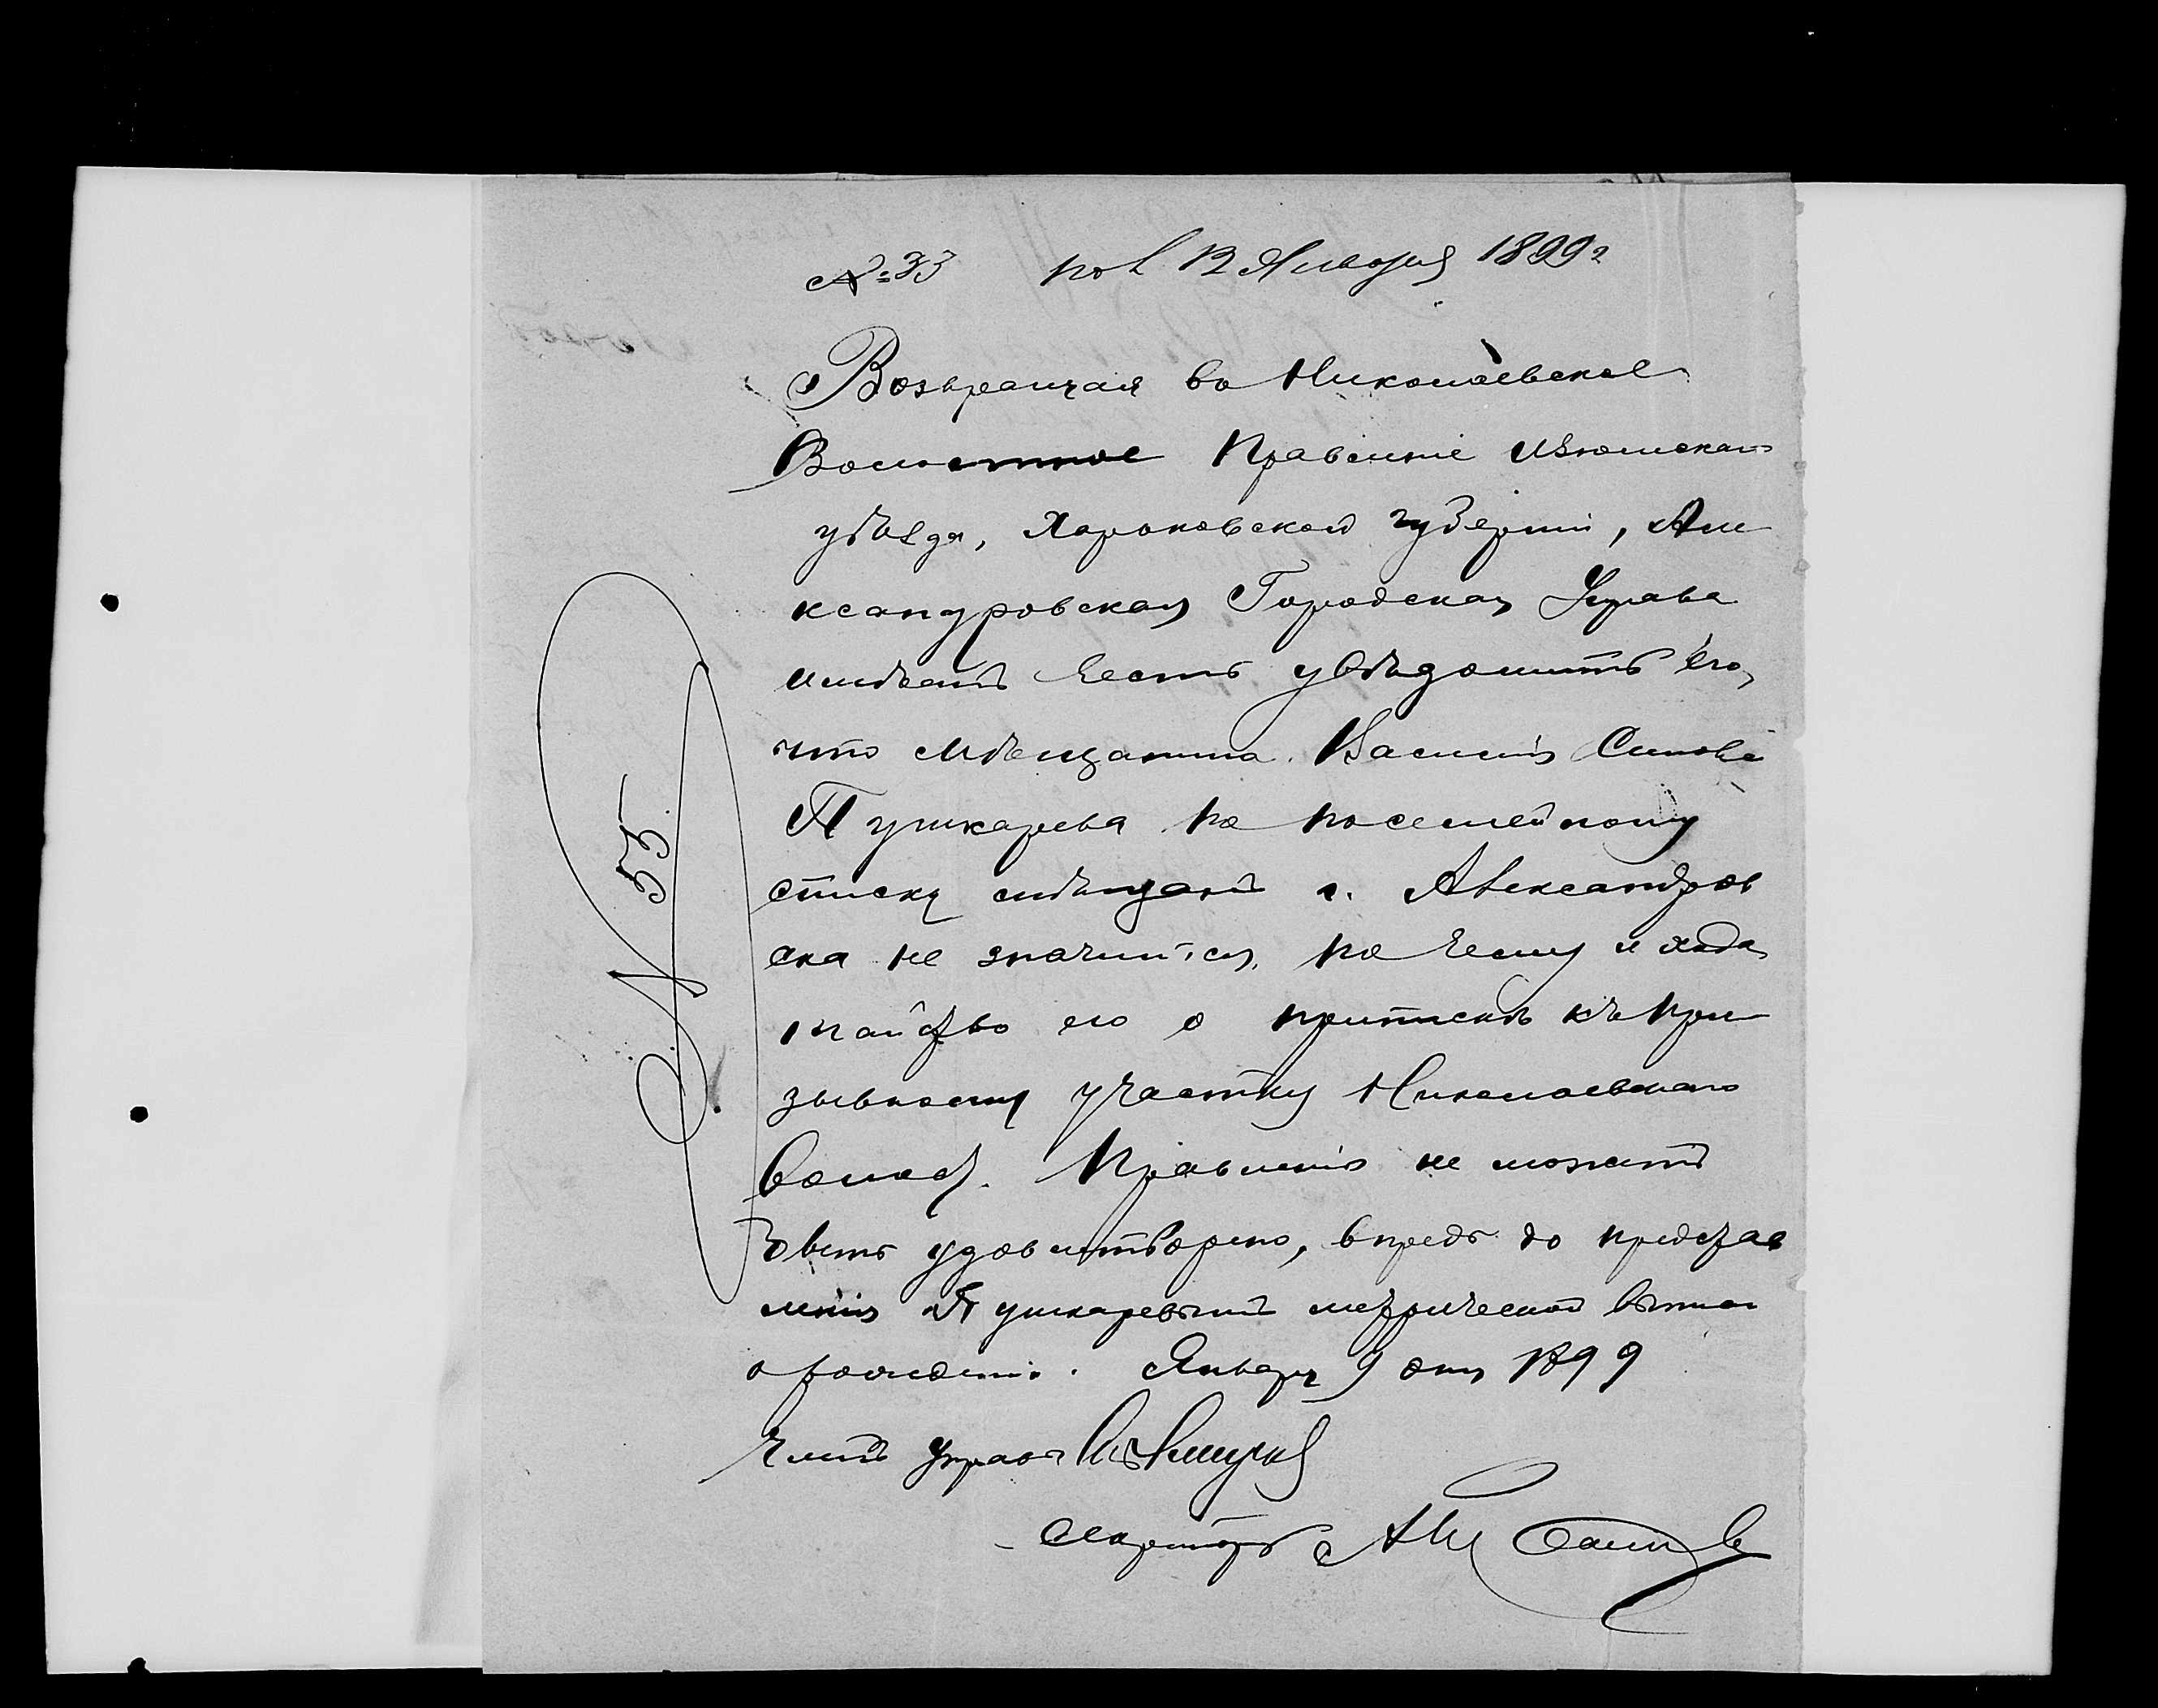 № 33 пол 12 Января 1899 г
Возвращая въ Николаевское
Волостное Правленіе Изюмскаго
уѣзда, Харьковской губерніи, Але
ксандровская Городская Управа
имѣетъ честь увѣдомить его,
что мѣщанина Василія
Пушкарева по посемейному
списку мѣщанъ г. Александров
ска не значится, по чему и хода
тайство его о припискѣ къ при
зывному участку Николаевскаго
волост. Правленія не можетъ
быть удовлетворено, впредь до представ
ленія Пушкаревымъ метрической выписи
о рожденіи. Января 9 дня 1899
Членъ Управы
Секретарь
№ 55